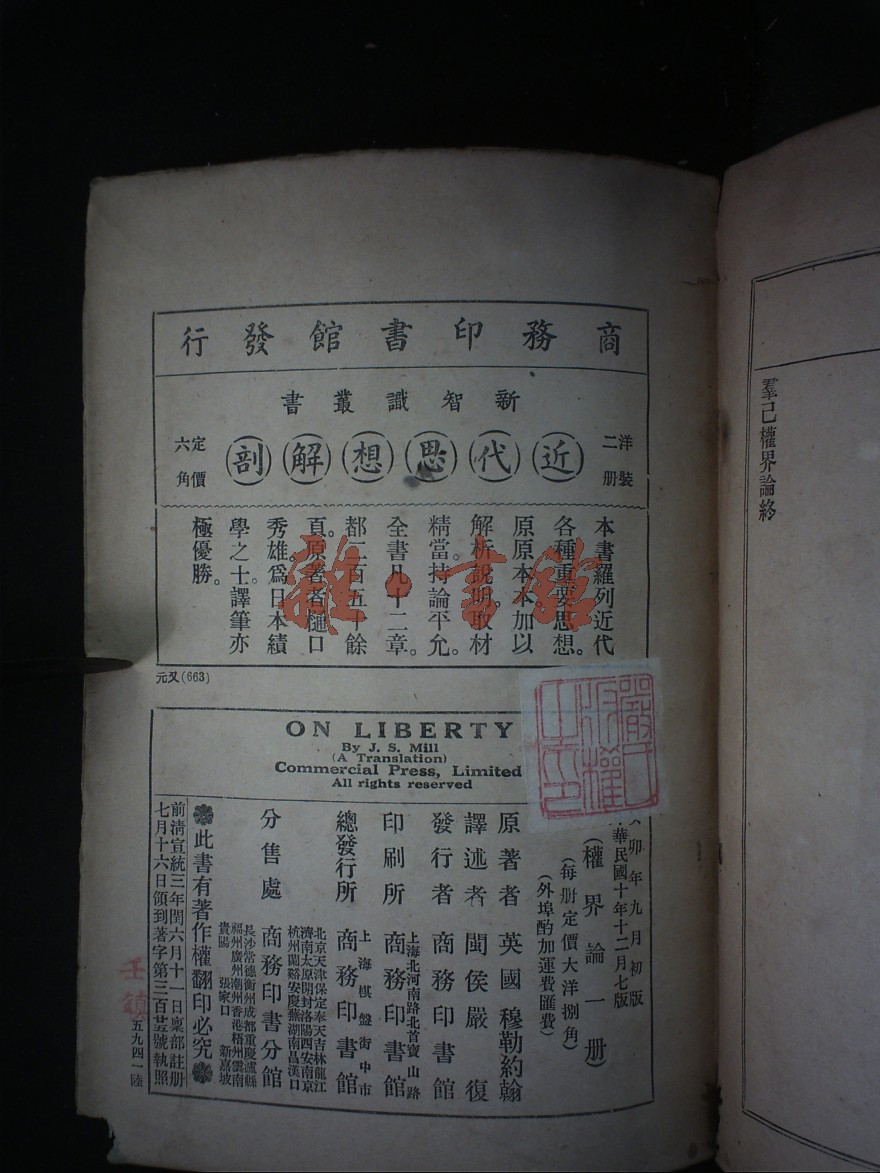 羣己權界論終
商務印書館發行
新智識叢書
洋裝二册
近代思想解剖
定價六角
本書羅列近代
各種重要思想。
原原本本加以
解析說明。取材
精當。持論平允。
全書凡十二章。
都二百五十餘
頁。原著者樋口
秀雄。爲日本績
學之士。譯筆亦
極優勝。
元又(663)
ON LIBERTY
By J. S. Mill
(A Translation)
Commercial Press, Limited
All rights reserved
卯年九月初版
華民國十年十二月七版
(權界論一册)
(每册定價大洋捌角)
(外埠酌加運費匯費)
原著者 英國穆勒約翰
譯述者 閩侯嚴復
發行者 商務印書館
印刷所 上海北河南路北首寶山路 商務印書館
總發行所 上海棋盤街中市 商務印書館
分售處 商務印書分館
北京天津保定奉天吉林龍江
濟南太原開封洛陽西安南京
杭州蘭谿安慶蕪湖南昌漢口
長沙常德衡州成都重慶瀘縣
福州廣州潮州香港梧州雲南
貴陽 張家口 新嘉坡
此書有著作權翻印必究
前清宣統三年閏六月十一日稟部註册
七月十六日領到著字第三百號執照
五九四一陸
雜·書館